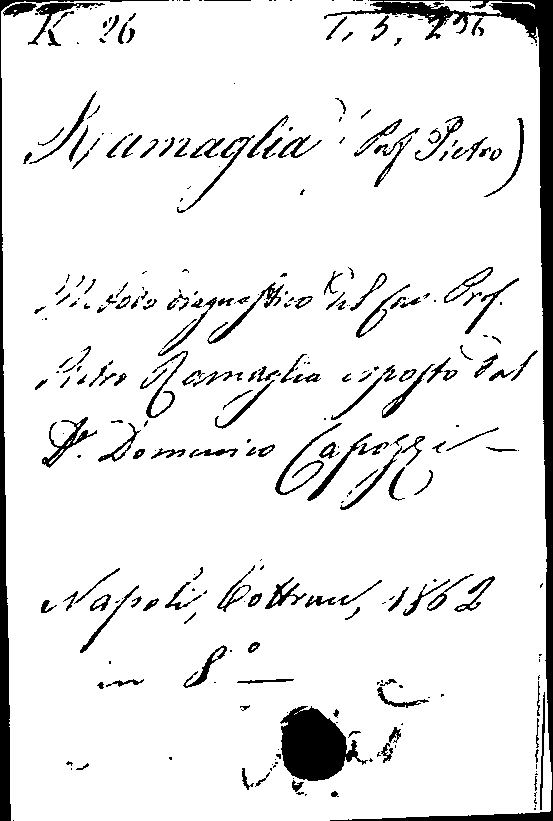 K. 26 T, 5, 296
Ramaglia (Prof Pietro)
Metodo diagnostico del Cav. Prof.
Pietro Ramaglia esposto dal
Dr. Domenico Capozzi —
Napoli, Cottrau, 1862
in 8.º —